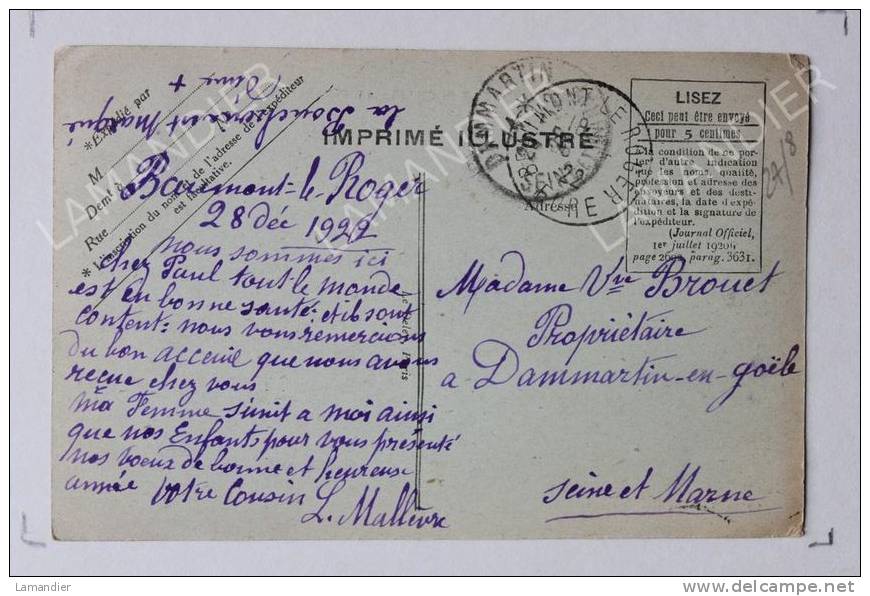 * Expédié par
M
Demt à
Rue
* L'inscription du nom et de l'adresse de l'expéditeur
est facultative.
IMPRIMÉ ILLUSTRÉ
Adresse
LISEZ
Ceci peut être envoyé
pour 5 centimes
à la condition de ne por-
ter d'autre indication
que les nom, qualité,
profession et adresse des
envoyeurs et des desti-
nataires, la date d'expé-
dition et la signature de
l'expéditeur.
(Journal Officiel,
1er juillet 1920,
page 2692, parag. 3631.
27/8
DAMMARTIN
BEAUMONT-LE-ROGER
EURE
Baumont-le-Roger
28 Déc 1922
nous sommes ici
chez Paul tout le monde
est en bonne santé et ils sont
content = nous vous remercions
du bon acceuil que nous avons
recue chez vous
ma Femme s'énit a moi ainsi
que nos Enfants pour vous présenté
nos voeux de bonne et heureuse
année votre Cousin
L. Mallèvre
Madame Vve Brouet
Propriétaire
a Dammartin-en-goële
Seine et Marne
LAMANDIER
Lamandier
www.delcampe.net